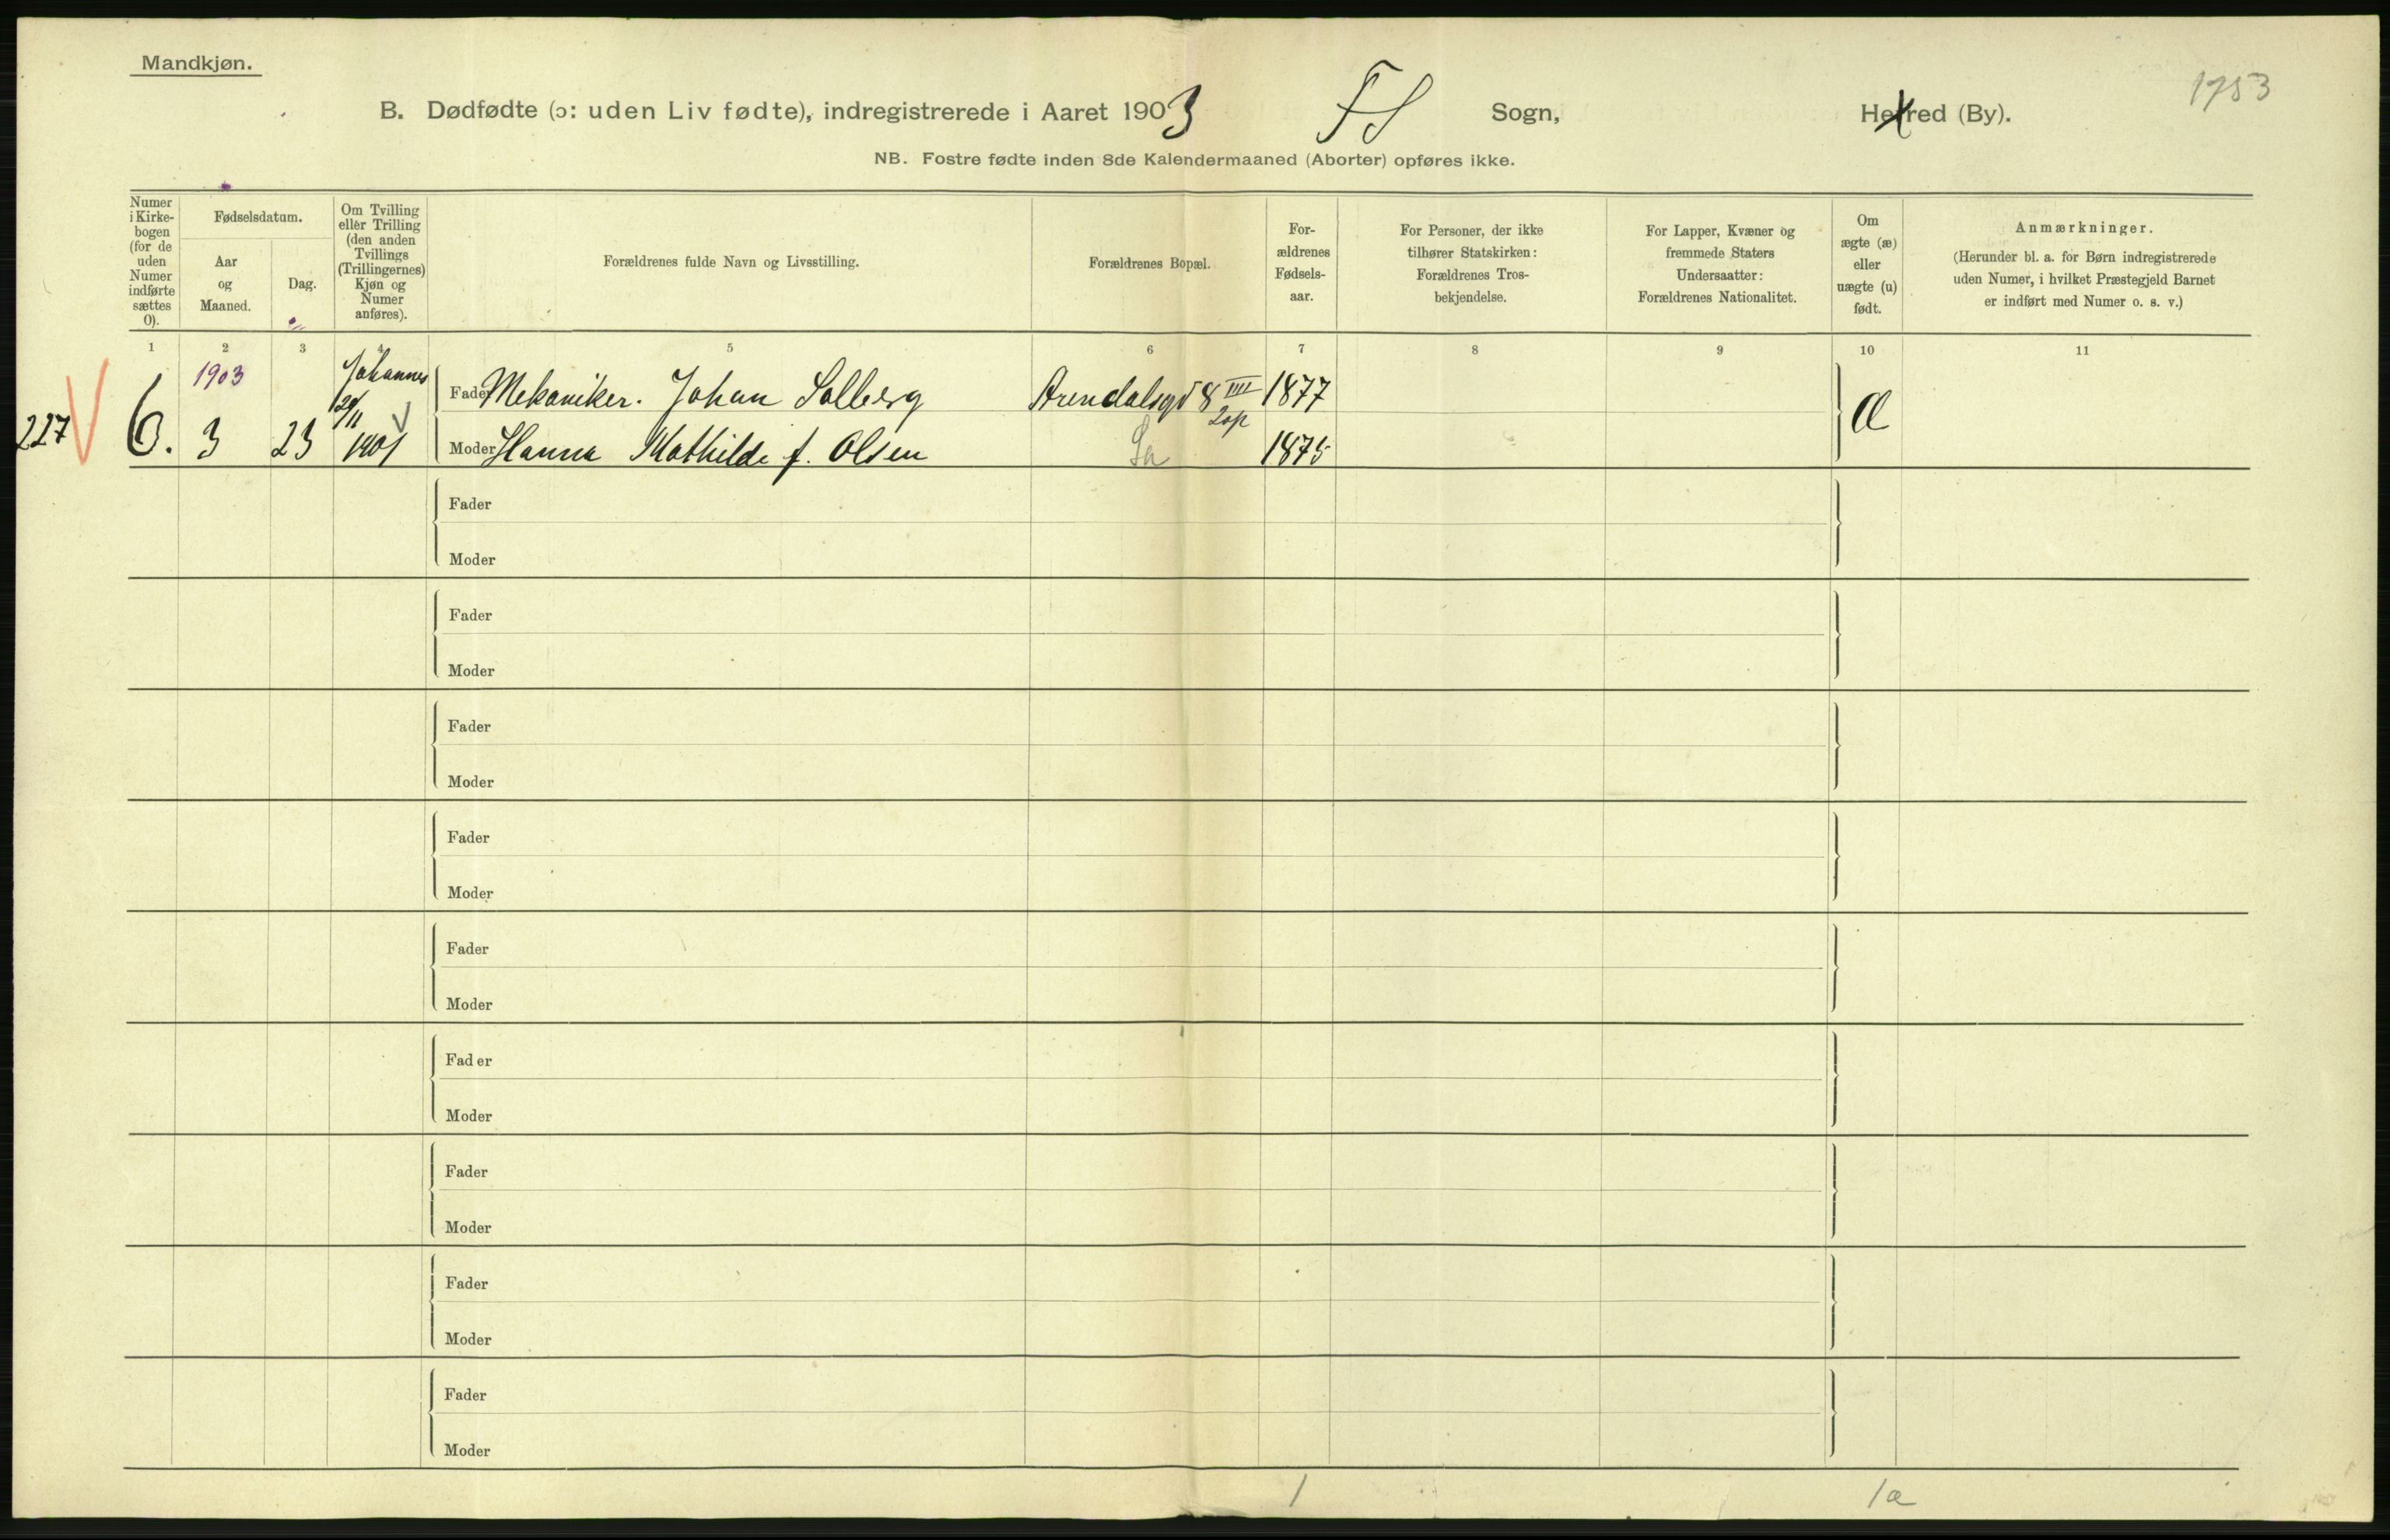 Mandkjøn.
1753
B. Dødfødte (ɔ: uden Liv fødte), indregistrerede i Aaret 1903 Sogn, Herred (By).
NB. Fostre fødte inden 8de Kalendermaaned (Aborter) opføres ikke.
Numer i Kirke- bogen (for de uden Numer indførte sættes 0).
Fødselsdatum.
Aar og Maaned.
Dag.
Om Tvilling eller Trilling (den anden Tvillings (Trillingernes) Kjøn og Numer anføres).
Forældrenes fulde Navn og Livsstilling.
Forældrenes Bopæl.
For- ældrenes Fødsels- aar.
For Personer, der ikke tilhører Statskirken: Forældrenes Tros- bekjendelse.
For Lapper, Kvæner og fremmede Staters Undersaatter: Forældrenes Nationalitet.
Om ægte (æ) eller uægte (u) født.
Anmærkninger.
(Herunder bl. a. for Børn indregistrerede uden Numer, i hvilket Præstegjeld Barnet er indført med Numer o. s. v.)
1 2 3 4 5 6 7 8 9 10 11
1903 Johannes
Fader Mekaniker. Johan Solberg Arendalsgd 8 IIII 1877
227 6. 3 23 1901 æ
Moder Hanna Mathilde f. Olsen 1875
Fader
Moder
Fader
Moder
Fader
Moder
Fader
Moder
Fader
Moder
Fader
Moder
Fader
Moder
Fader
Moder
Fader
Moder
1 1æ